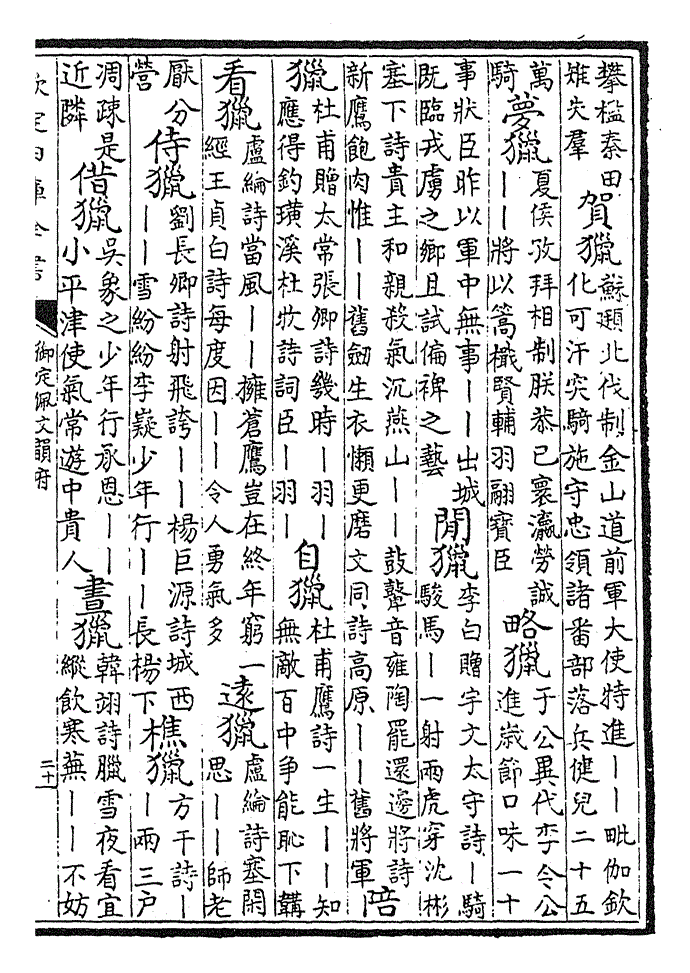 攀檻秦田
雉失羣
賀獵
蘇頲北伐制金山道前軍大使特進丨丨毗伽欽
化可汗突騎施守忠領諸番部落兵健兒二十五
萬
騎
夢獵
夏侯孜拜相制朕恭已寰瀛勞誠
丨丨將以篙檝賢輔羽翮寶臣
略獵
于公異代李令公
進歲節口味一十
事狀臣昨以軍中無事丨丨出城
既臨戎虜之鄉且試偏裨之藝
閒獵
李白贈宇文太守詩丨騎
駿馬丨一射兩虎穿沈彬
塞下詩貴主和親殺氣沉燕山丨丨鼓鼙音雍陶罷還邊將詩
新鷹飽肉惟丨丨舊劒生衣懶更磨文同詩高原丨丨舊將軍
陪
獵
杜甫贈太常張卿詩幾時丨羽丨
應得釣璜溪杜牧詩詞臣丨羽丨
自獵
杜甫鷹詩一生丨丨知
無敵百中爭能恥下韝
看獵
盧綸詩當風丨丨擁蒼鷹豈在終年窮一
經王貞白詩每度因丨丨令人勇氣多
遠獵
盧綸詩塞閑
思丨丨師老
厭分
營
侍獵
劉長卿詩射飛誇丨丨楊巨源詩城西
丨丨雪紛紛李嶷少年行丨丨長楊下
樵獵
方干詩丨
丨兩三戶
凋疎是
近隣
借獵
吳象之少年行承恩丨丨
小平津使氣常遊中貴人
晝獵
韓翃詩臘雪夜看宜
縱飲寒蕪丨丨不妨
欽定四庫全書
御定佩文韻府